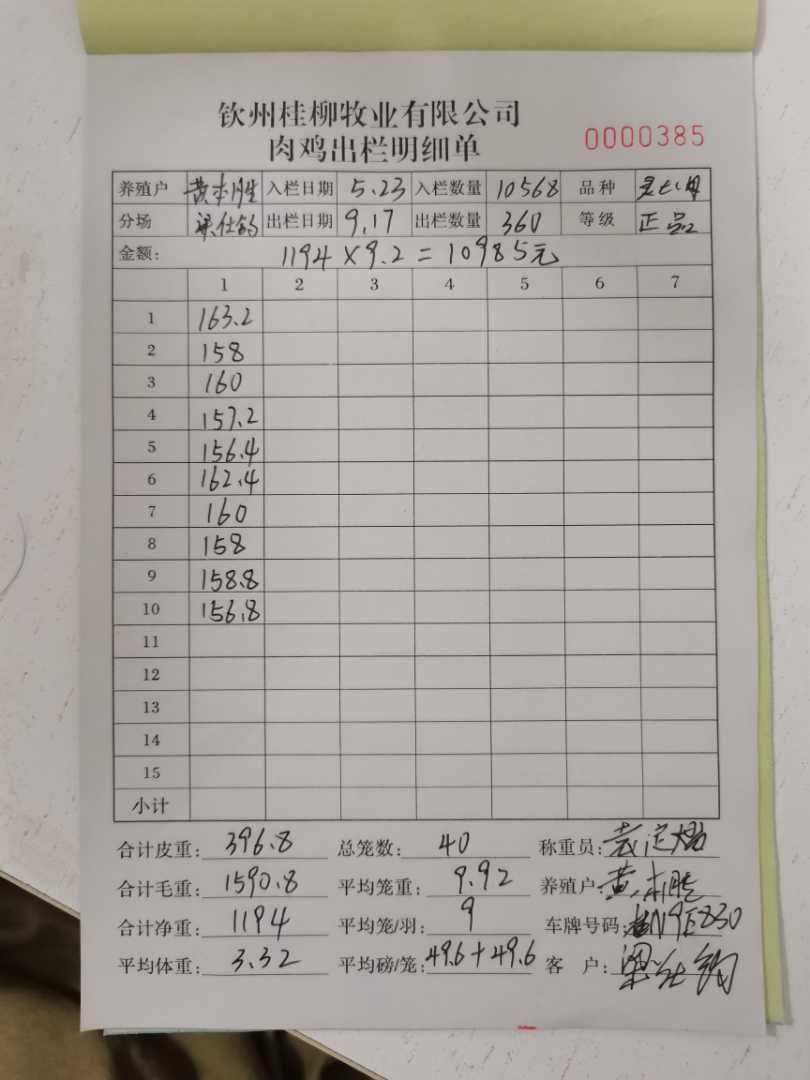 钦州桂柳牧业有限公司
肉鸡出栏明细单
0000385
养殖户 黄本胜 入栏日期 5.23 入栏数量 10568 品种
分场 梁仕钧 出栏日期 9.17 出栏数量 360 等级 正品
金额: 1194×9.2=10985元
1 2 3 4 5 6 7
1 163.2
2 158
3 160
4 157.2
5 156.4
6 162.4
7 160
8 158
9 158.8
10 156.8
11
12
13
14
15
小计
合计皮重: 396.8 总笼数: 40 称重员:
合计毛重: 1590.8 平均笼重: 9.92 养殖户: 黄本胜
合计净重: 1194 平均笼/羽: 9 车牌号码: N9E830
平均体重: 3.32 平均磅/笼: 49.6+49.6 客 户: 梁仕钧